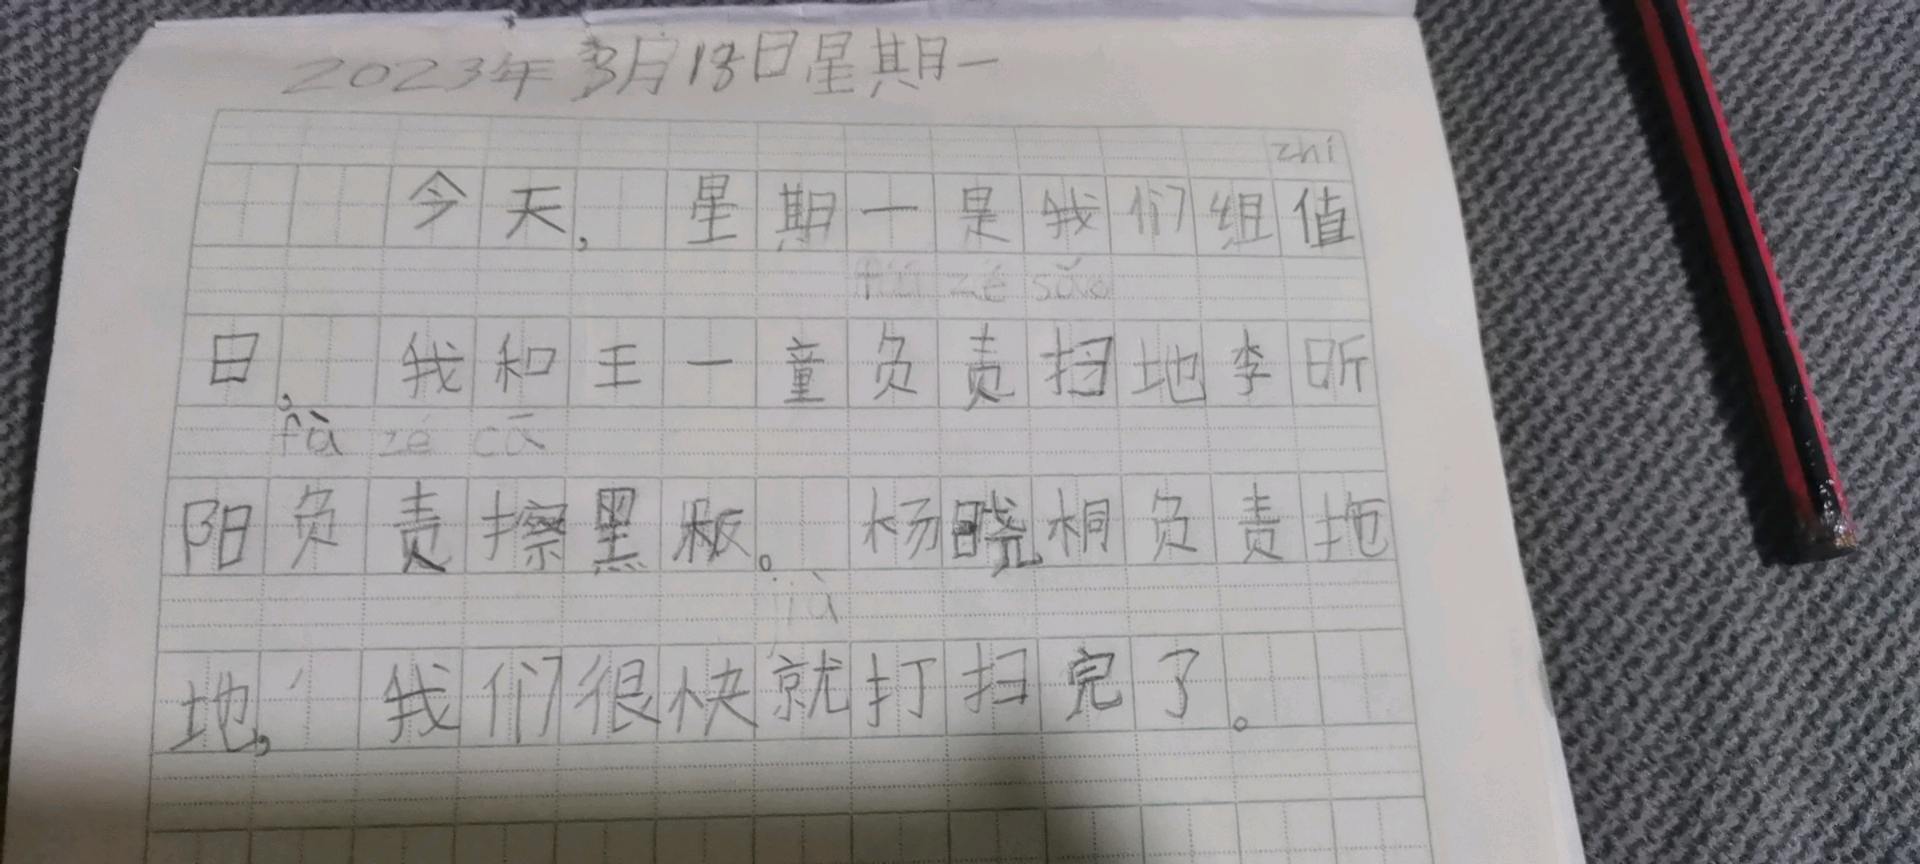 2023年3月18日星期一
zhí
今天,星期一是我们组值
fù zé sǎo
日,我和王一童负责扫地李昕
fù zé cā
阳负责擦黑板。杨晓桐负责拖
jiù
地,我们很快就打扫完了。